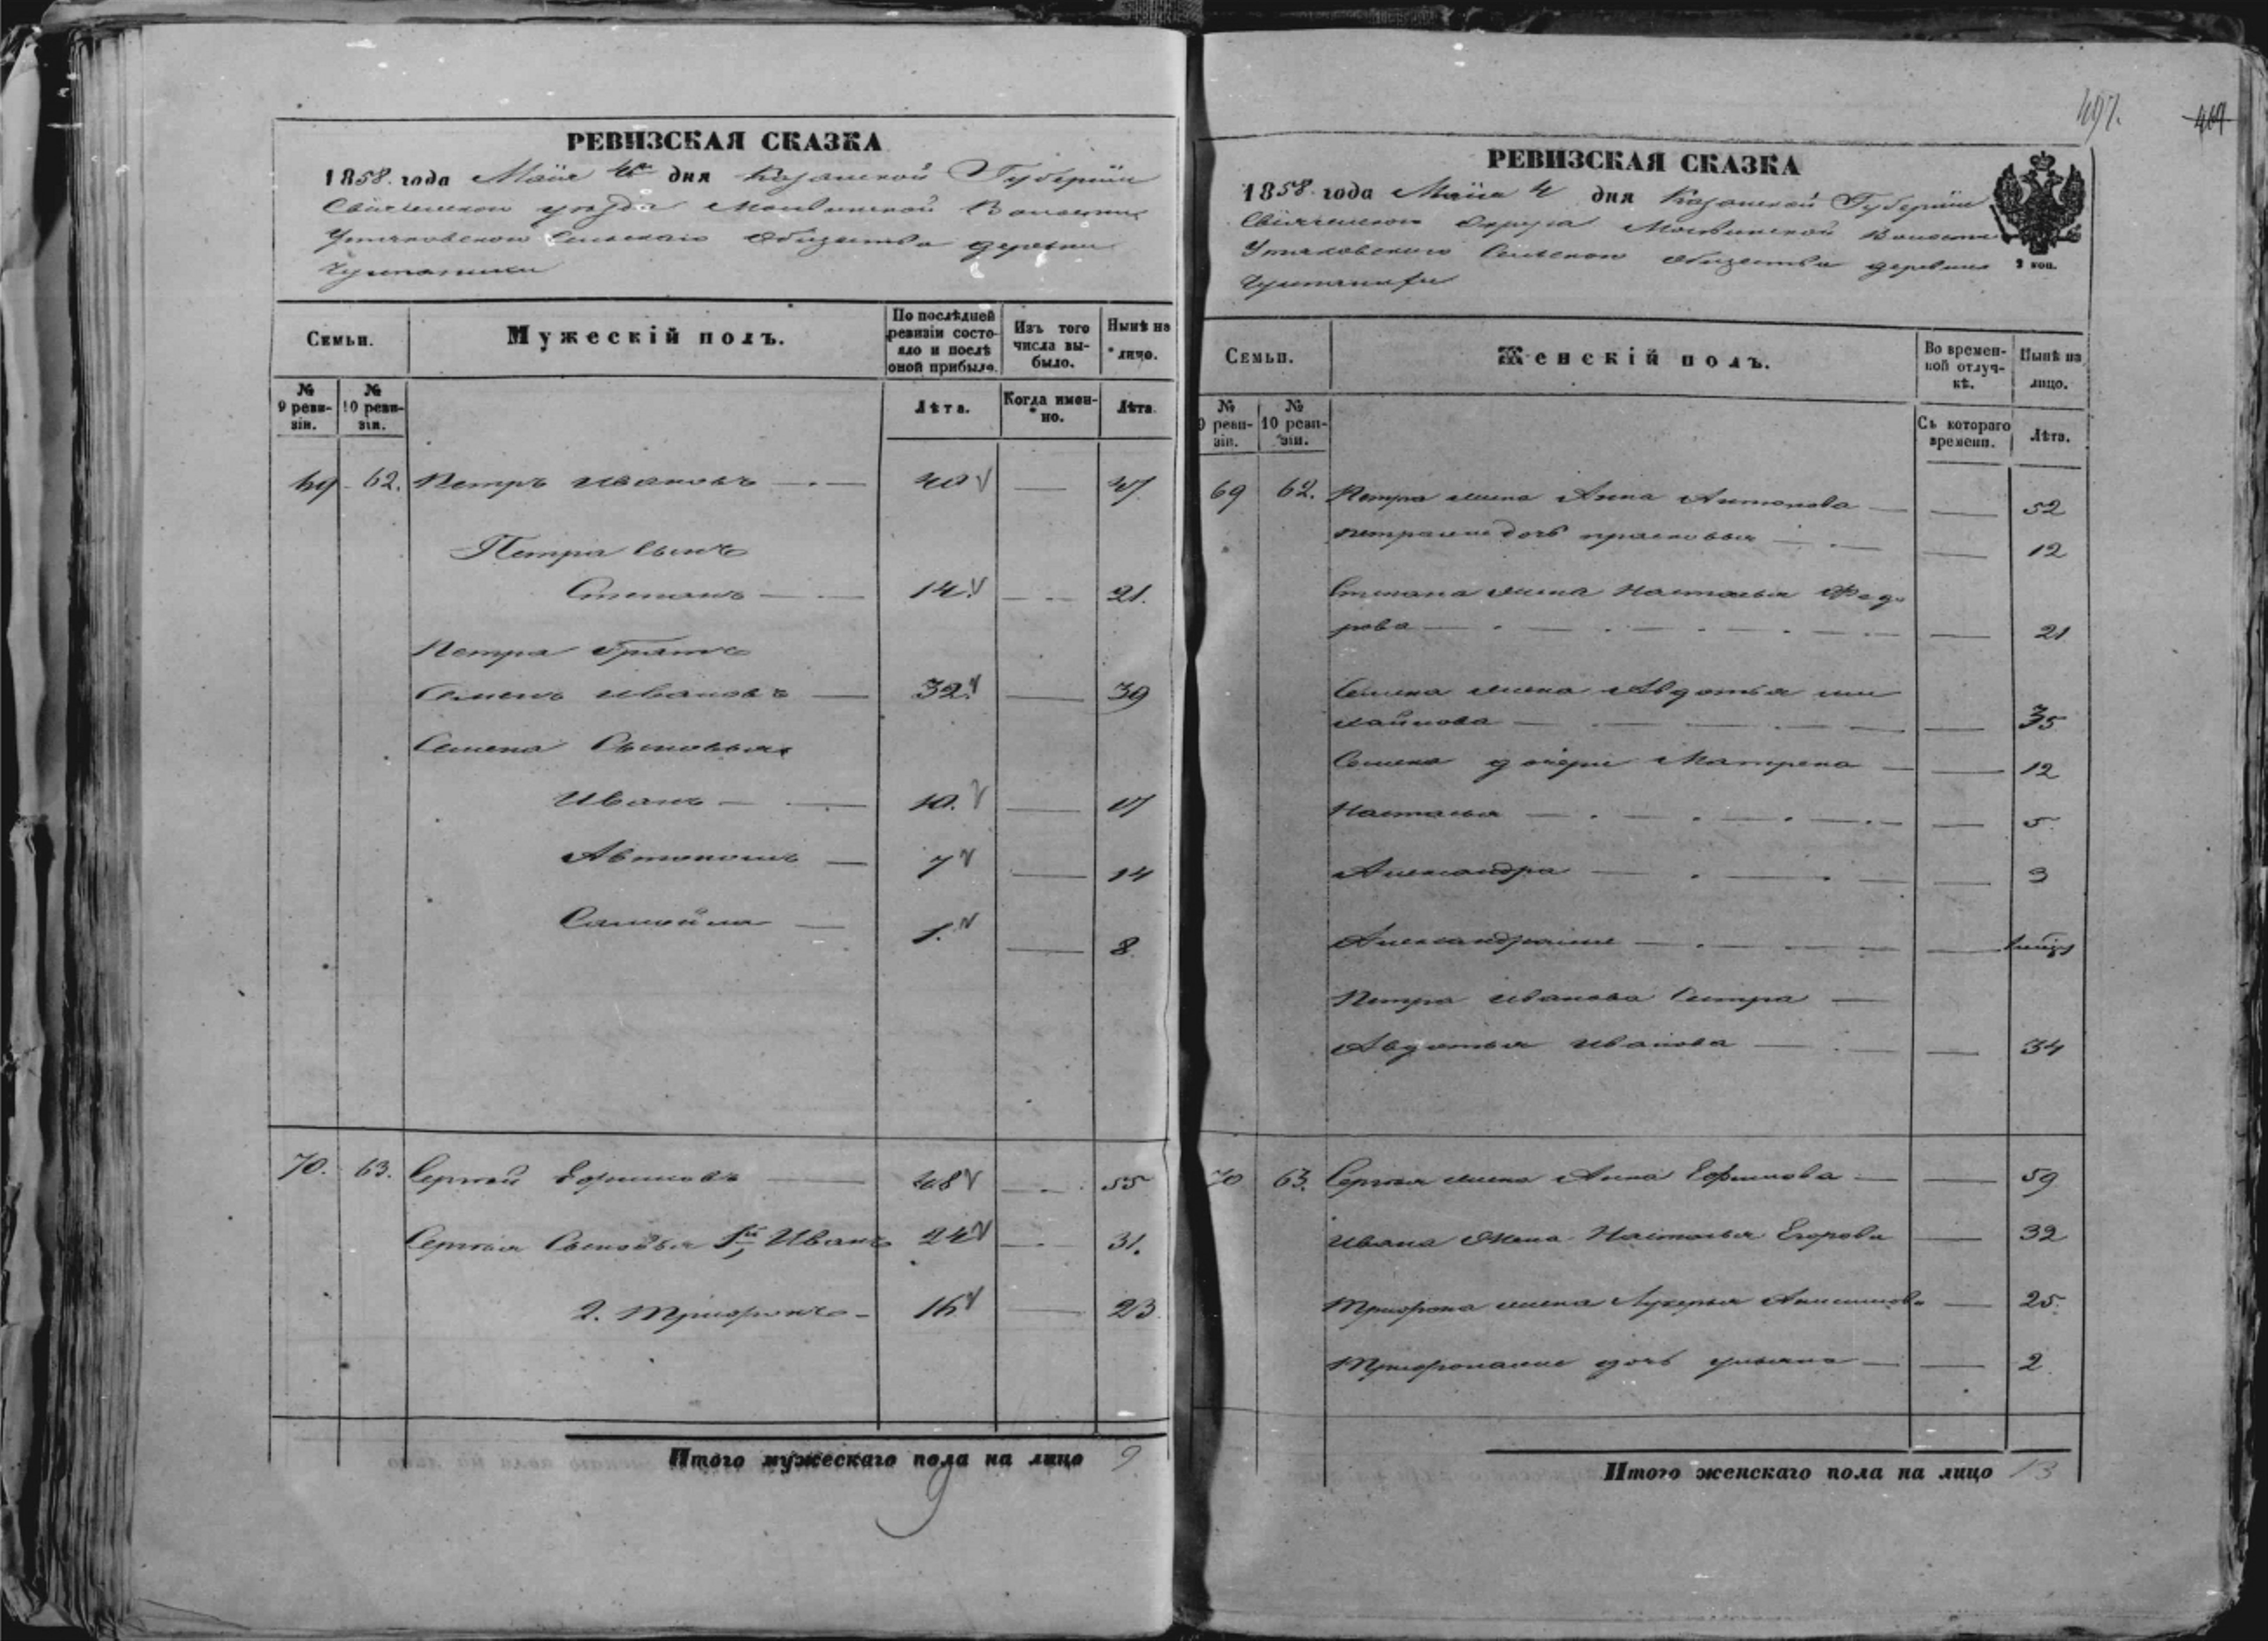 РЕВИЗСКАЯ СКАЗКА
1858 года Маія 4го дня Казанской Губерніи
Свіяжскаго уѣзда Волости
Утяковского Сельскаго Общества деревни
По послѣдней ревизіи состояло и послѣ оной прибыло.
Изъ того числа выбыло.
Нынѣ на лицо.
Семьи.
Мужескій полъ.
№ 9 ревизіи.
№ 10 ревизіи.
Лѣта.
Когда именно.
Лѣта.
69 62. Петръ Ивановъ 40 47
Петра сынъ
Степанъ 14. 21.
Петра братъ
Семенъ Ивановъ 32. 39
Семена Сыновья
Иванъ 10. 17
Автономъ 7 14
Самойла 1. 8.
70. 63. Сергей Ефимовъ 48 55
Сергея Сыновья 1й Иванъ 24 31.
2. Трифонъ 16 23
Итого мужескаго пола на лицо 9
9
497.
РЕВИЗСКАЯ СКАЗКА
1858 года Маія 4 дня Казанской Губерніи
Свіяжского Округа Волости
Утяковского Сельского общества деревни
3 коп.
Семьи.
Женскій полъ.
Во временной отлучкѣ.
Нынѣ на лицо.
№ 9 ревизіи.
№ 10 ревизіи.
Съ котораго времени.
Лѣта.
69 62. Петра жена Анна Антонова 52
дочь Прасковья 12
Степана жена Настасья Федо
рова 21
Семена жена Авдотья ми
хайлова 35
Семена дочери Матрена 12
Настасья 5
Александра 3
Петра Иванова Сестра
Авдотья Иванова 34
70 63. Сергея жена Анна Ефимова 59
Ивана Жена Настасья Егорова 32
Трифона жена Лукерья 25.
дочь Ульяна 2
Итого женскаго пола на лицо 13